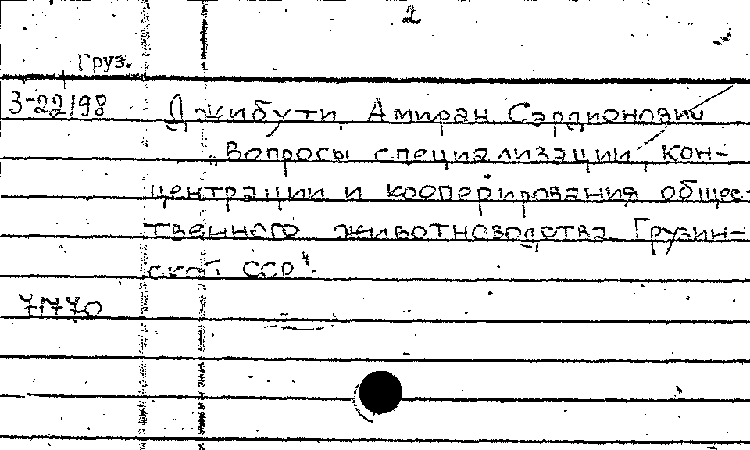 2
Груз.
3-22198 Джибути, Амиран Сардионович
„Вопросы специализации, кон-
центрации и кооперирования общес-
твенного животноводства Грузин-
ской ССР".
71770